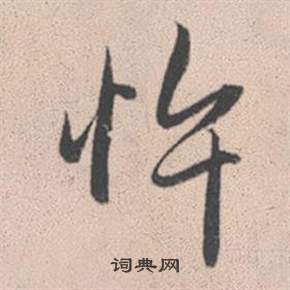 忤
词典网